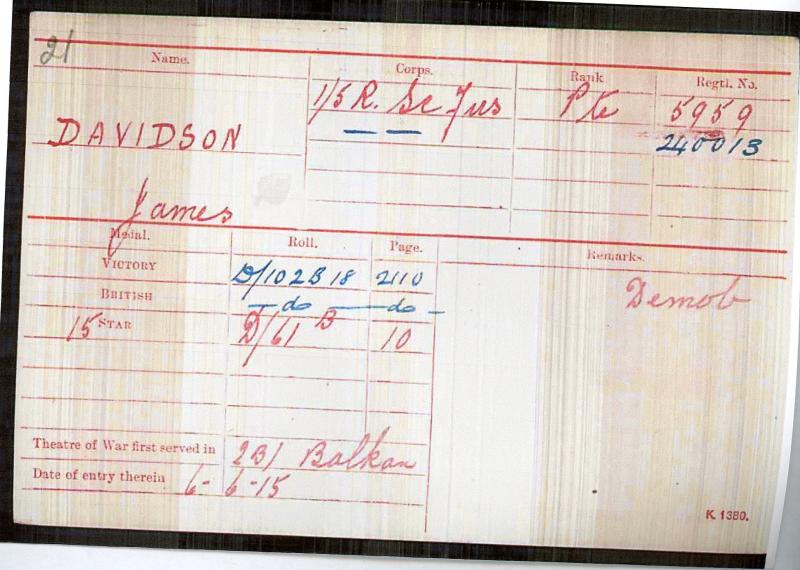 21
Name. Corps. Rank Regtl. No.
1/5 R. Sc Fus Pte 5959
DAVIDSON — — 240013
James
Medal. Roll. Page. Remarks.
VICTORY D/102B18 2110
Demob
BRITISH — do — do —
15 STAR D/61 B 10
Theatre of War first served in (2B) Balkan
Date of entry therein 6-6-15
K. 1380.